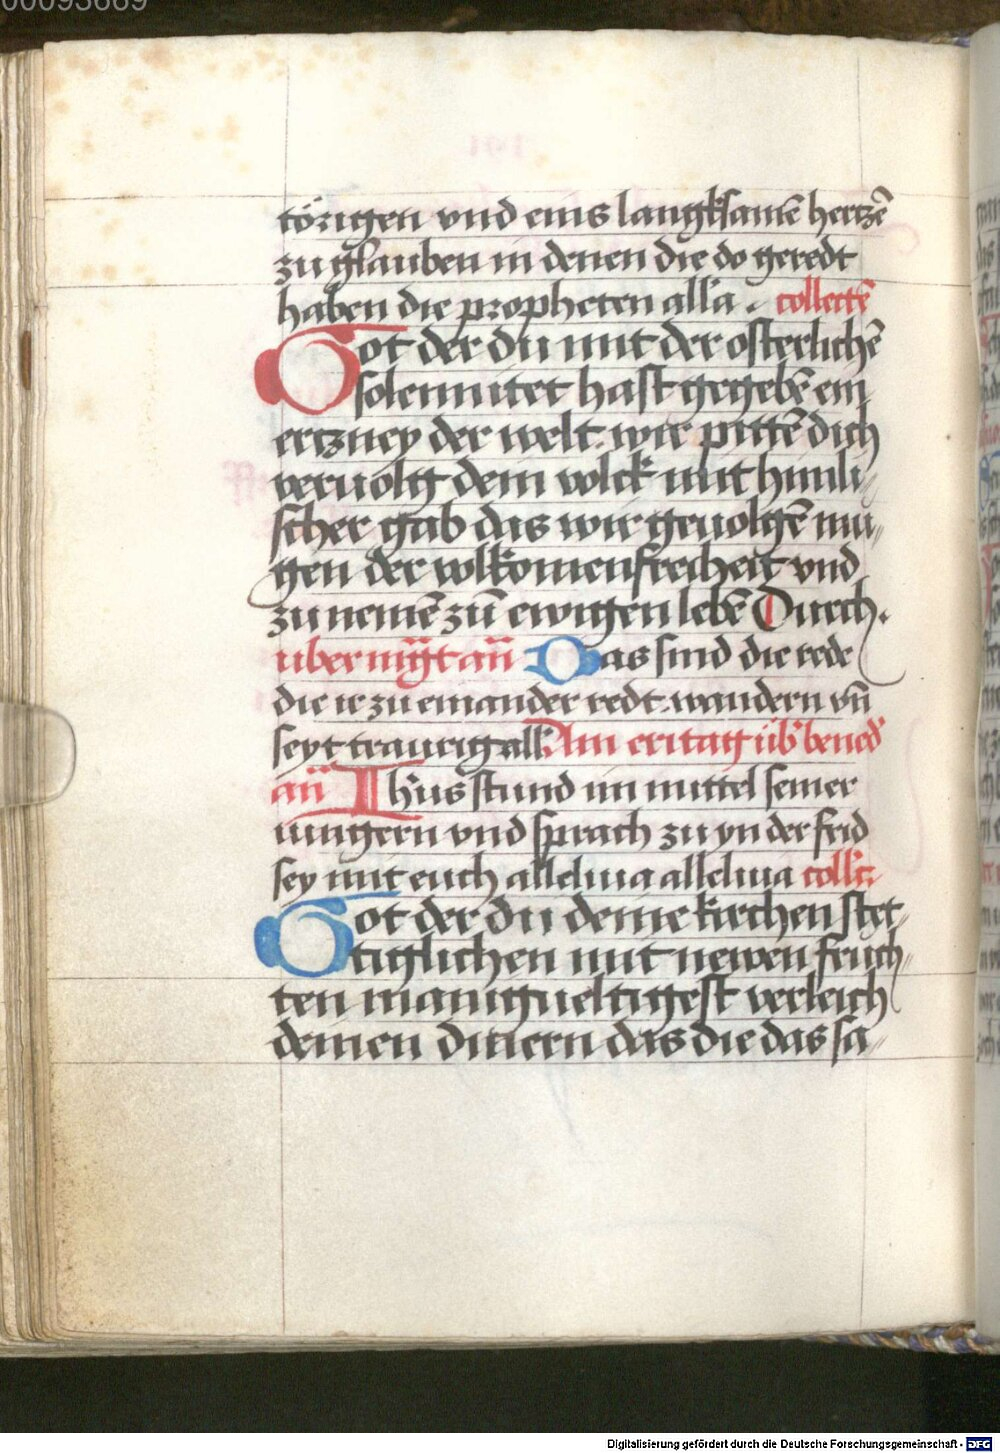 00093669
törigen vnd eins langksamē hertzē
zu glauben in denen die do geredt
haben die propheten all'a . collectē
Got der du mit der osterlichē
solennitet hast gegebē ein
ertzney der welt. wir pittē dich
veruolg dem volck mit himli//
scher gab das wir geuolgē mu//
gen der volkomen freiheit vnd
zu nemē zū ewigen lebē Durch.
uber mgt an̄ Das sind die rede
die ir zu einander redt wandern vn̄
seyt traurig all' Am eritag üb' bened'
an̄ Ihūs stund im mittel seiner
iungern vnd sprach zu yn der frid
sey mit euch alleluia alleluia coll'ī
Got der du deine kirchen stet//
tiglichen mit newen fruch//
ten manigueltigest verleich
deinen dinern das die das sa//
Digitalisierung gefördert durch die Deutsche Forschungsgemeinschaft - DFG